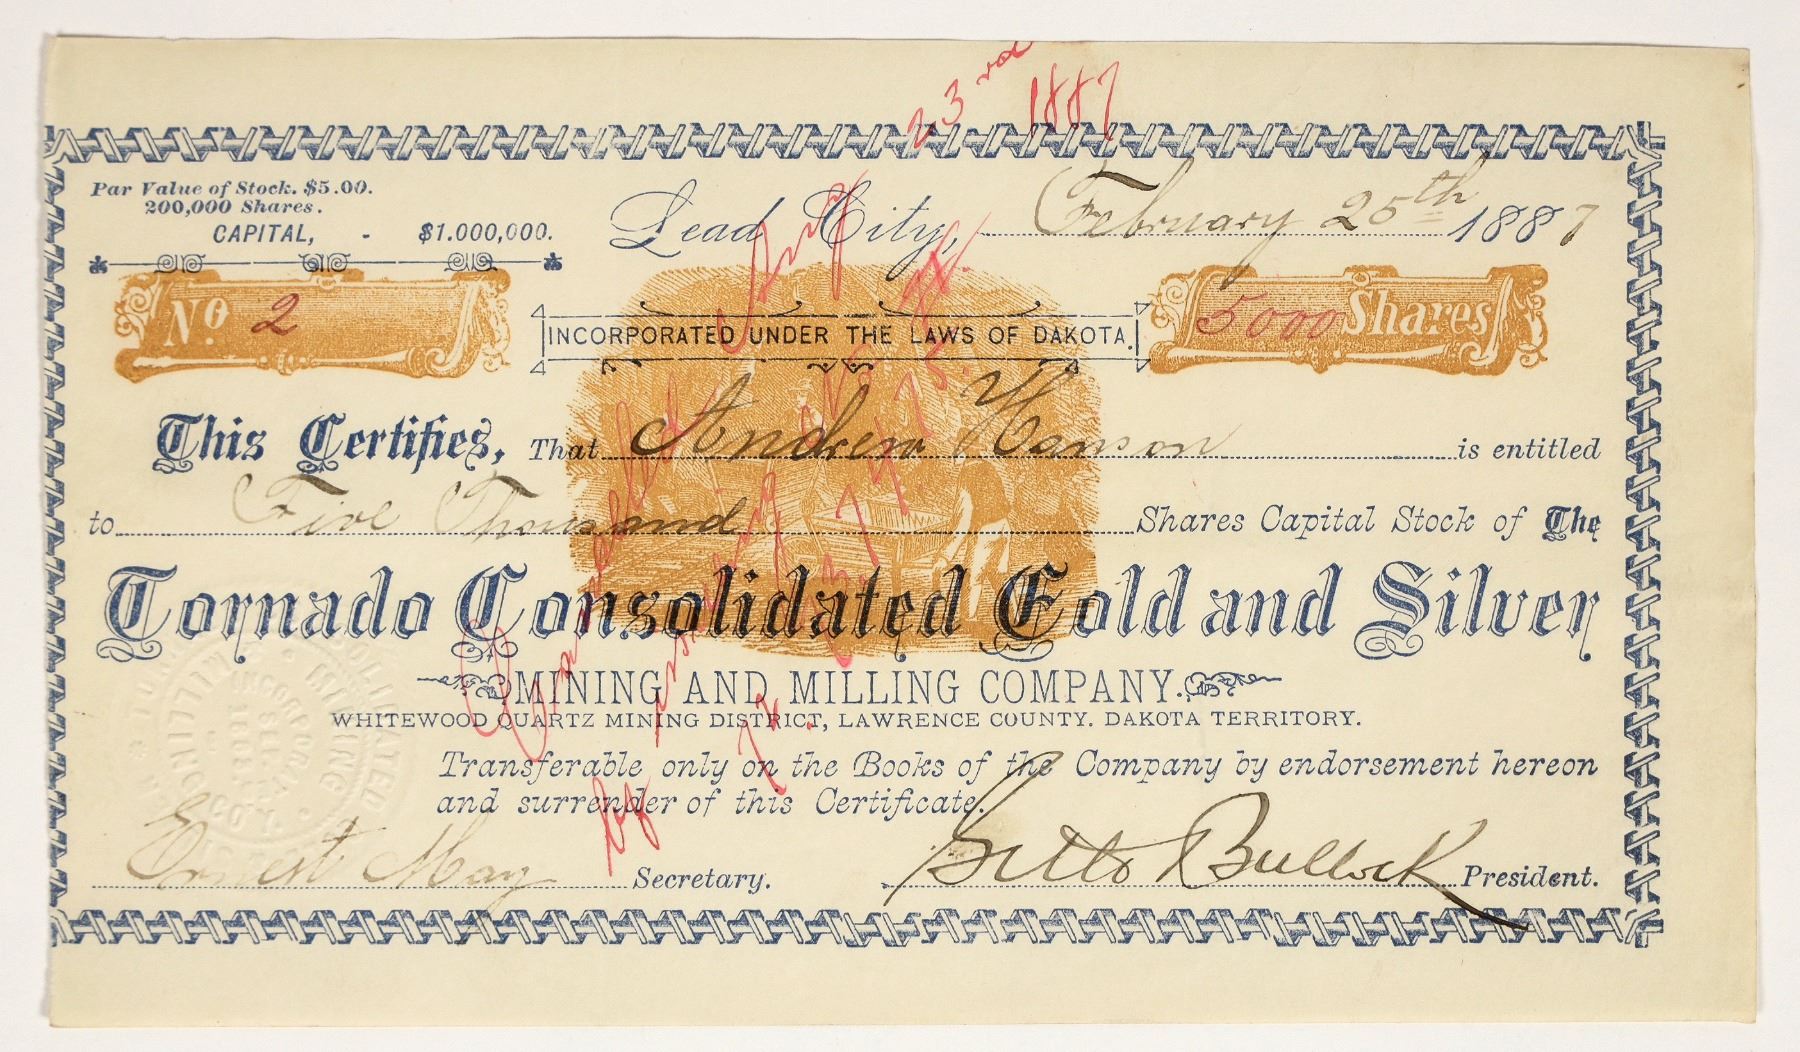 Par Value of Stock. $5.00.
200,000 Shares.
CAPITAL, - $1.000,000.
Lead City, February 25th 1887
No. 2
INCORPORATED UNDER THE LAWS OF DAKOTA.
5000 Shares
This Certifies, That Andrew Hanson is entitled
to Five Thousand Shares Capital Stock of The
Tornado Consolidated Gold and Silver
MINING AND MILLING COMPANY.
WHITEWOOD QUARTZ MINING DISTRICT, LAWRENCE COUNTY. DAKOTA TERRITORY.
Transferable only on the Books of the Company by endorsement hereon
and surrender of this Certificate.
Ernest May Secretary.
Seth Bullock President.
Cancelled Aug 23rd 1887
by issuing